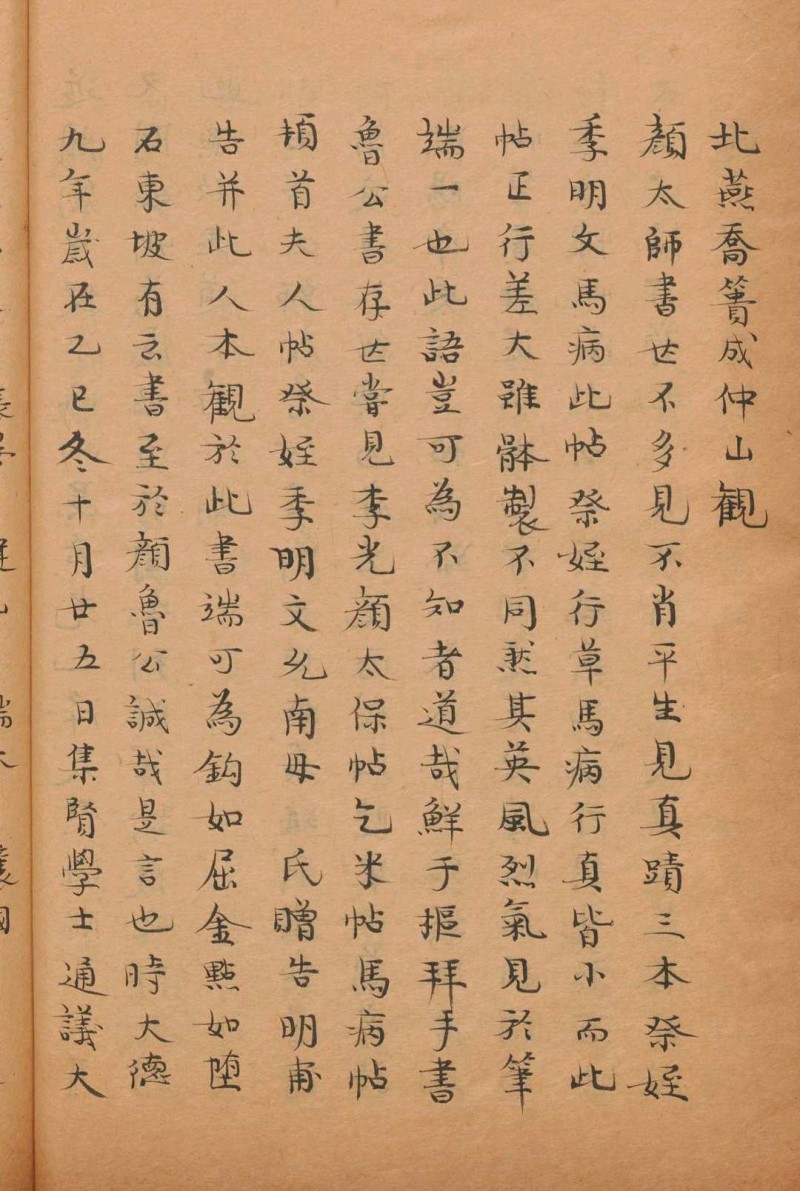 北燕喬簣成仲山観
顔太師書世不多見不肖平生見真蹟三本祭姪
季明文馬病此帖祭姪行草馬病行真皆小而此
帖正行差大雖躰製不同然其英風烈氣見於筆
端一也此語豈可為不知者道哉鮮于摳拜手書
魯公書存世嘗見李光顔太保帖乞米帖馬病帖
頓首夫人帖祭姪季明文允南母 氏贈告明甫
告并此八本観於此書端可為鈎如屈金點如堕
石東坡有云書至於顔魯公誠哉是言也時大德
九年嵗在乙巳冬十月廿五日集賢學士通議大